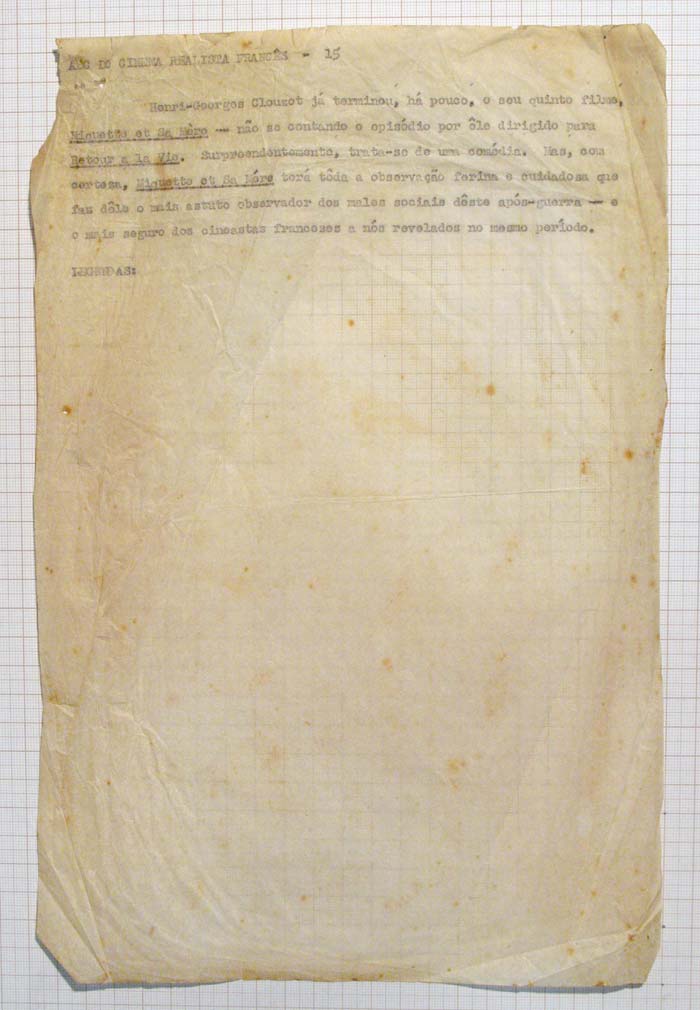 ABC DO CINEMA REALISTA FRANCÊS - 15
Henri-Georges Clouzot já terminou, há pouco, o seu quinto filme,
Miquette et Sa Mère — não se contando o episódio por êle dirigido para
Retour a la Vie. Surpreendentemente, trata-se de uma comédia. Mas, com
certeza, Miquette et Sa Mére terá tôda a observação ferina e cuidadosa que
faz dêle o mais astuto observador dos males sociais dêste após-guerra — e
o mais seguro dos cineastas franceses a nós revelados no mesmo período.
LEGENDAS: